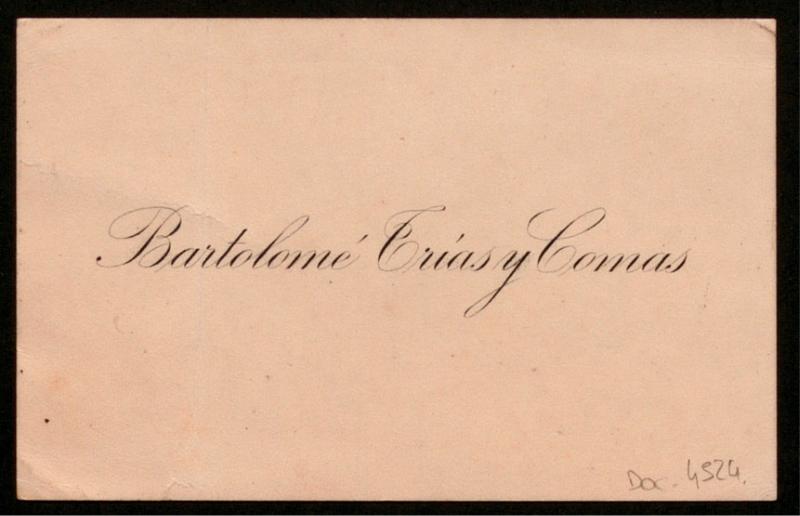 Bartolomé Trías y Comas
Doc. 4924.